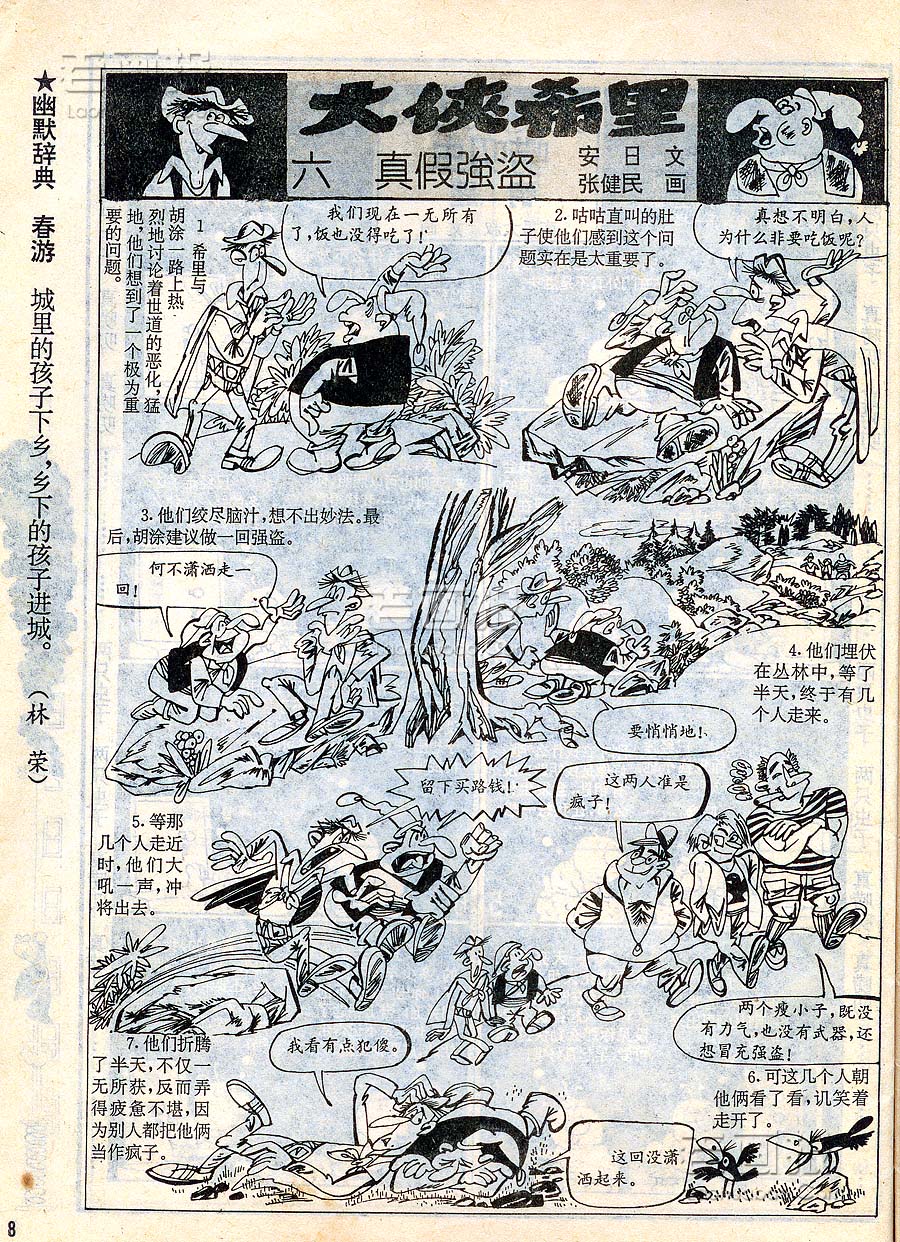 ★幽默辞典　春游　城里的孩子下乡，乡下的孩子进城。（林　荣）
大侠希里
六　真假強盗
安日文
张健民　画
1 希里与
胡涂一路上热
烈地讨论着世道的恶化，猛
地，他们想到了一个极为重
要的问题。
我们现在一无所有
了，饭也没得吃了！
2.咕咕直叫的肚
子使他们感到这个问
题实在是太重要了。
真想不明白，人
为什么非要吃饭呢？
3.他们绞尽脑汁，想不出妙法。最
后，胡涂建议做一回强盗。
何不潇洒走一
回！
4.他们埋伏
在丛林中，等了
半天，终于有几
个人走来。
要悄悄地！
5.等那
几个人走近
时，他们大
吼一声，冲
将出去。
留下买路钱！
这两人准是
疯子！
两个瘦小子，既没
有力气，也没有武器，还
想冒充强盗！
6.可这几个人朝
他俩看了看，讥笑着
走开了。
7.他们折腾
了半天，不仅一
无所获，反而弄
得疲惫不堪，因
为别人都把他俩
当作疯子。
我看有点犯傻。
这回没潇
洒起来。
8
老画报